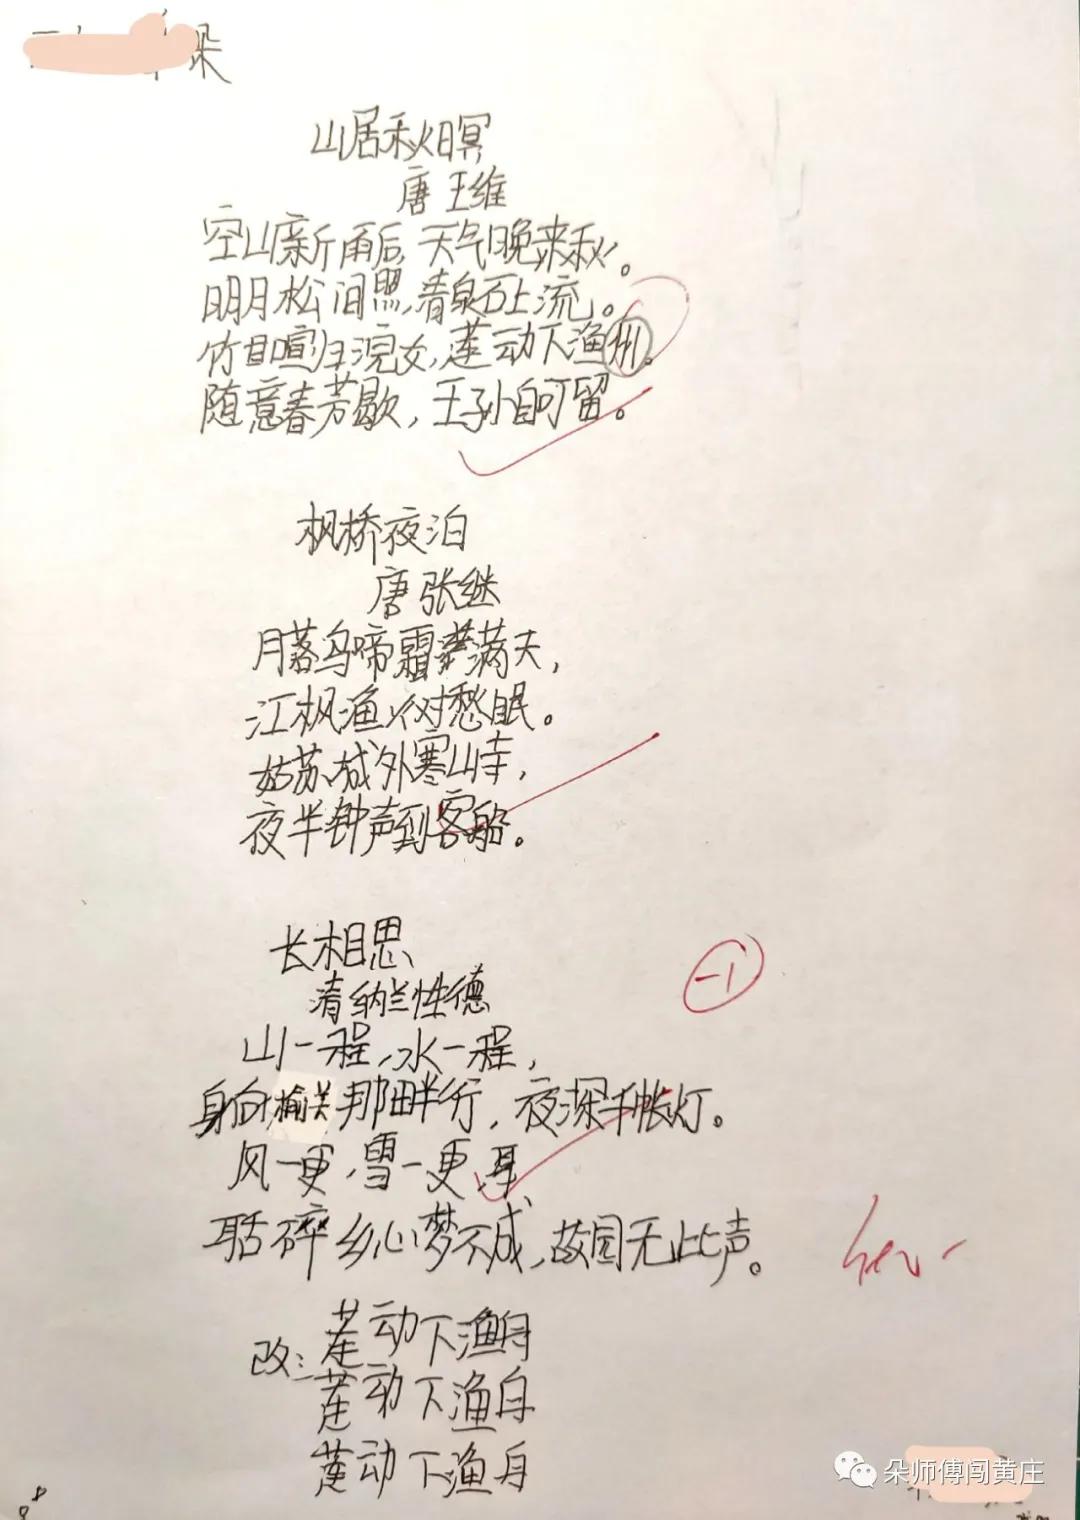 朵
山居秋暝
唐 王维
空山新雨后,天气晚来秋。
明月松间照,清泉石上流。
竹目喧归浣女,莲动下渔州。
随意春芳歇,王孙自可留。
枫桥夜泊
唐 张继
月落乌啼霜满天,
江枫渔火对愁眠。
姑苏城外寒山寺,
夜半钟声到客船。
长相思
清 纳兰性德
-1
山一程,水一程,
身向榆关那畔行,夜深千帐灯。
风一更,雪一更,
聒碎乡心梦不成,故园无此声。
改:莲动下渔舟
莲动下渔舟
莲动下渔舟
朵师傅闯黄庄